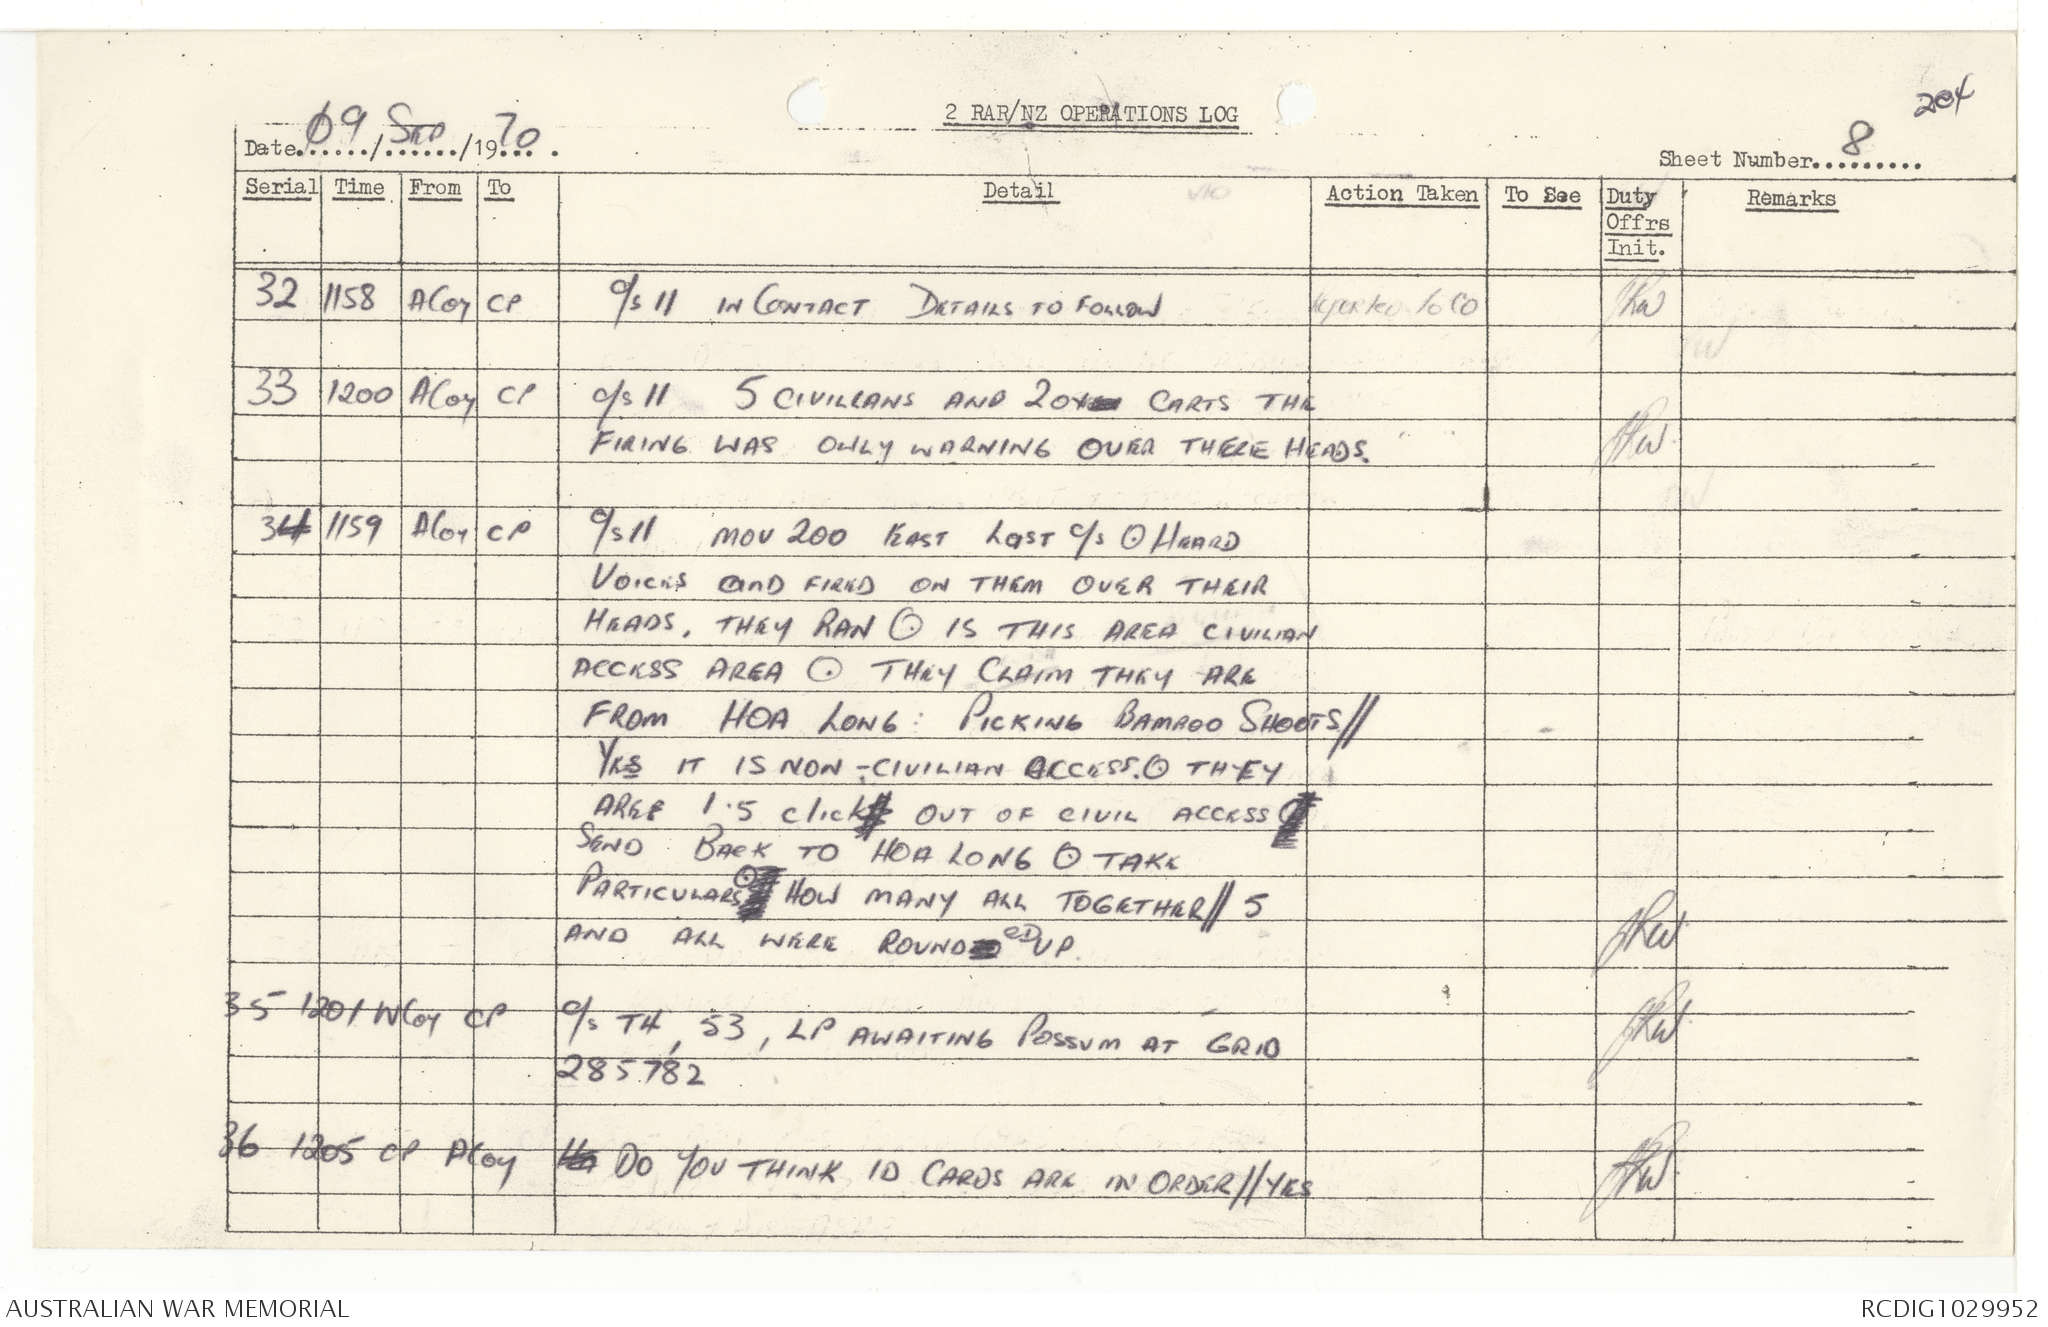 204
2 RAR/NZ OPERATIONS LOG
Date 09 / SEP / 1970.
Sheet Number 8
Serial Time From To Detail Action Taken To See Duty Offrs Init. Remarks
32 1158 ACoy CP c/s 11 IN CONTACT DETAILS TO FOLLOW Reported to CO
33 1200 ACoy CP c/s 11 5 CIVILIANS AND 2 OX CARTS THE
FIRING WAS ONLY WARNING OVER THERE HEADS.
34 1159 ACoy CP c/s 11 MOV 200 EAST LAST c/s ⊙ HEARD
VOICES AND FIRED ON THEM OVER THEIR
HEADS, THEY RAN ⊙ IS THIS AREA CIVILIAN
ACCESS AREA ⊙ THEY CLAIM THEY ARE
FROM HOA LONG: PICKING BAMBOO SHOOTS//
YES IT IS NON-CIVILIAN ACCESS. ⊙ THEY
ARE 1.5 click OUT OF CIVIL ACCESS
SEND BACK TO HOA LONG ⊙ TAKE
PARTICULARS ⊙ HOW MANY ALL TOGETHER// 5
AND ALL WERE ROUNDED UP.
35 1201 WCoy CP c/s TH, 53, LP AWAITING POSSUM AT GRID
285782
36 1205 CP ACoy DO YOU THINK ID CARDS ARE IN ORDER//YES
AUSTRALIAN WAR MEMORIAL
RCDIG1029952